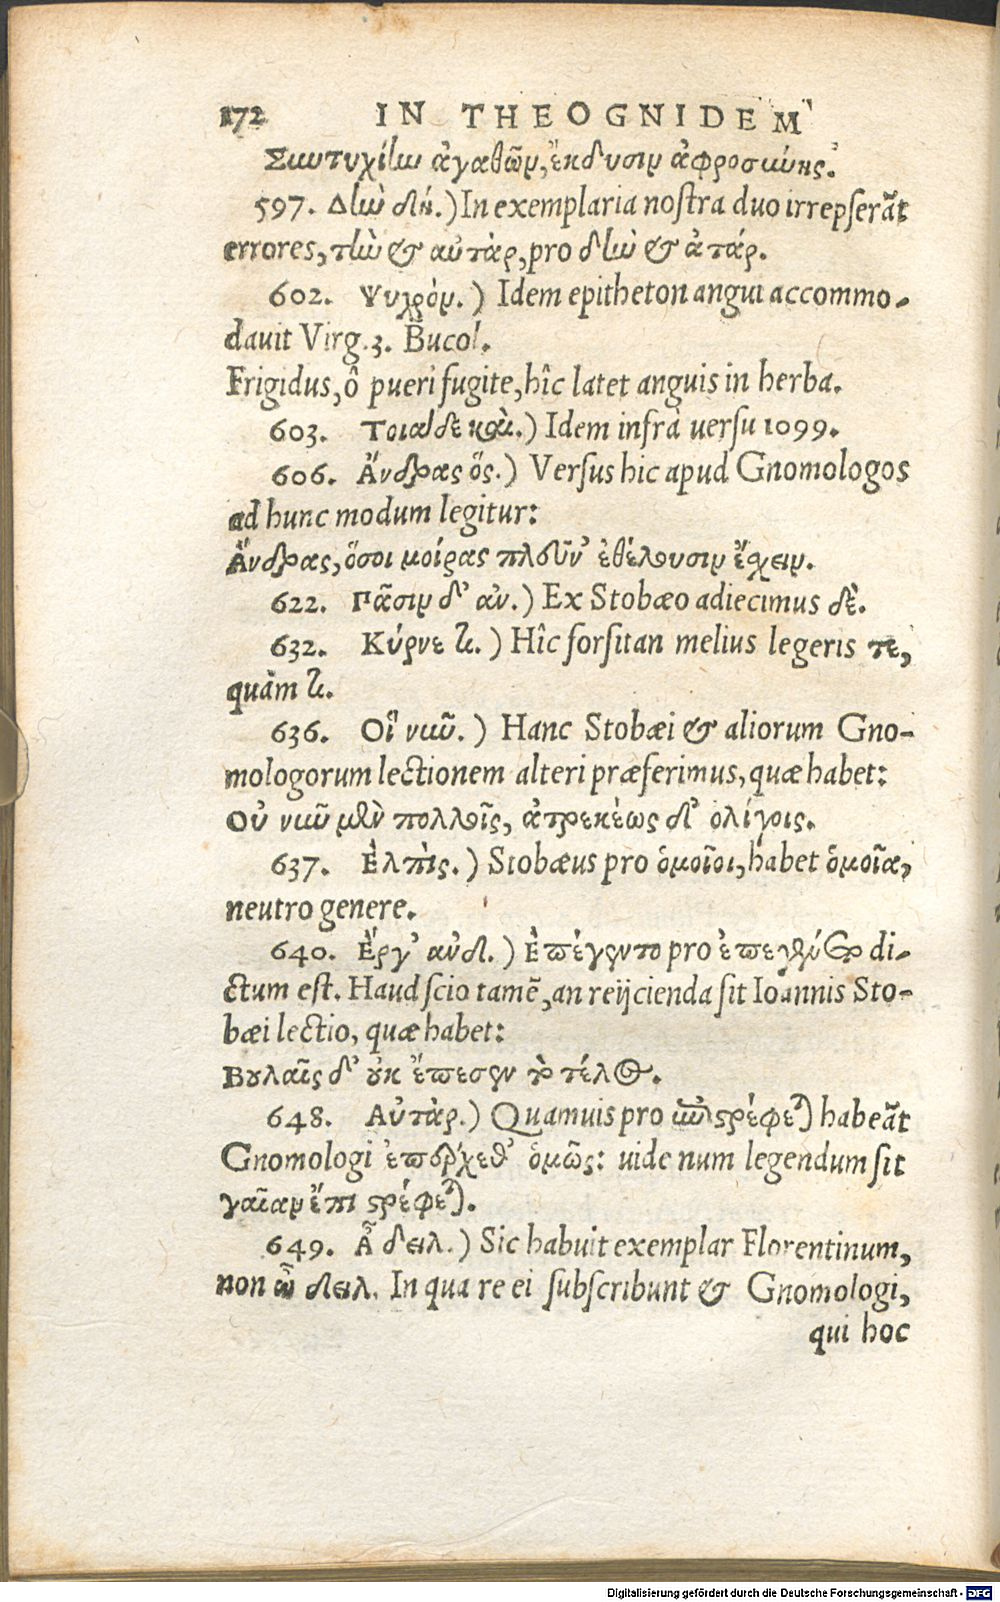 172 IN THEOGNIDEM
Συντυχίην ἀγαθῶν, ἔκδυσιν ἀφροσύνης.
597. Δὴν δή.) In exemplaria nostra duo irrepserãt
errores, τὴν & αὐτὰρ, pro δὴν & ἀτάρ.
602. Ψυχρόν.) Idem epitheton angui accommo-
davit Virg. 3. Bucol.
Frigidus, ô pueri fugite, hîc latet anguis in herba.
603. Τοιάδε καὶ.) Idem infrà uersu 1099.
606. Ἄνδρας ὅς.) Versus hic apud Gnomologos
ad hunc modum legitur:
Ἄνδρας, ὅσοι μοίρας πλεῦν' ἐθέλουσιν ἔχειν.
622. Πᾶσιν δ' αν.) Ex Stobæo adiecimus δὲ.
632. Κύρνε κ.) Hîc forsitan melius legeris τε,
quàm κ.
636. Οἳ νῦν.) Hanc Stobæi & aliorum Gno-
mologorum lectionem alteri præferimus, quæ habet:
Οὐ νῦν μὲν πολλοῖς, ἀτρεκέως δ' ὀλίγοις.
637. Ἐλπὶς.) Stobæus pro ὁμοῖοι, habet ὁμοῖα,
neutro genere.
640. Ἔργ' αὐδ.) Ἐπέγεντο pro di-
ctum est. Haud scio tamẽ, an reijcienda sit Ioannis Sto-
bæi lectio, quæ habet:
Βουλαῖς δ' οὐκ ἔπεσεν τὸ τέλος.
648. Αὐτὰρ.) Quamuis pro ἐπιστρέφεται habeãt
Gnomologi ἐπέρχεθ' ὁμῶς: uide num legendum sit
γαῖαν ἔπι στρέφεται.
649. Ἆ δειλ.) Sic habuit exemplar Florentinum,
non ὦ δειλ. In qua re ei subscribunt & Gnomologi,
qui hoc
Digitalisierung gefördert durch die Deutsche Forschungsgemeinschaft - DFG